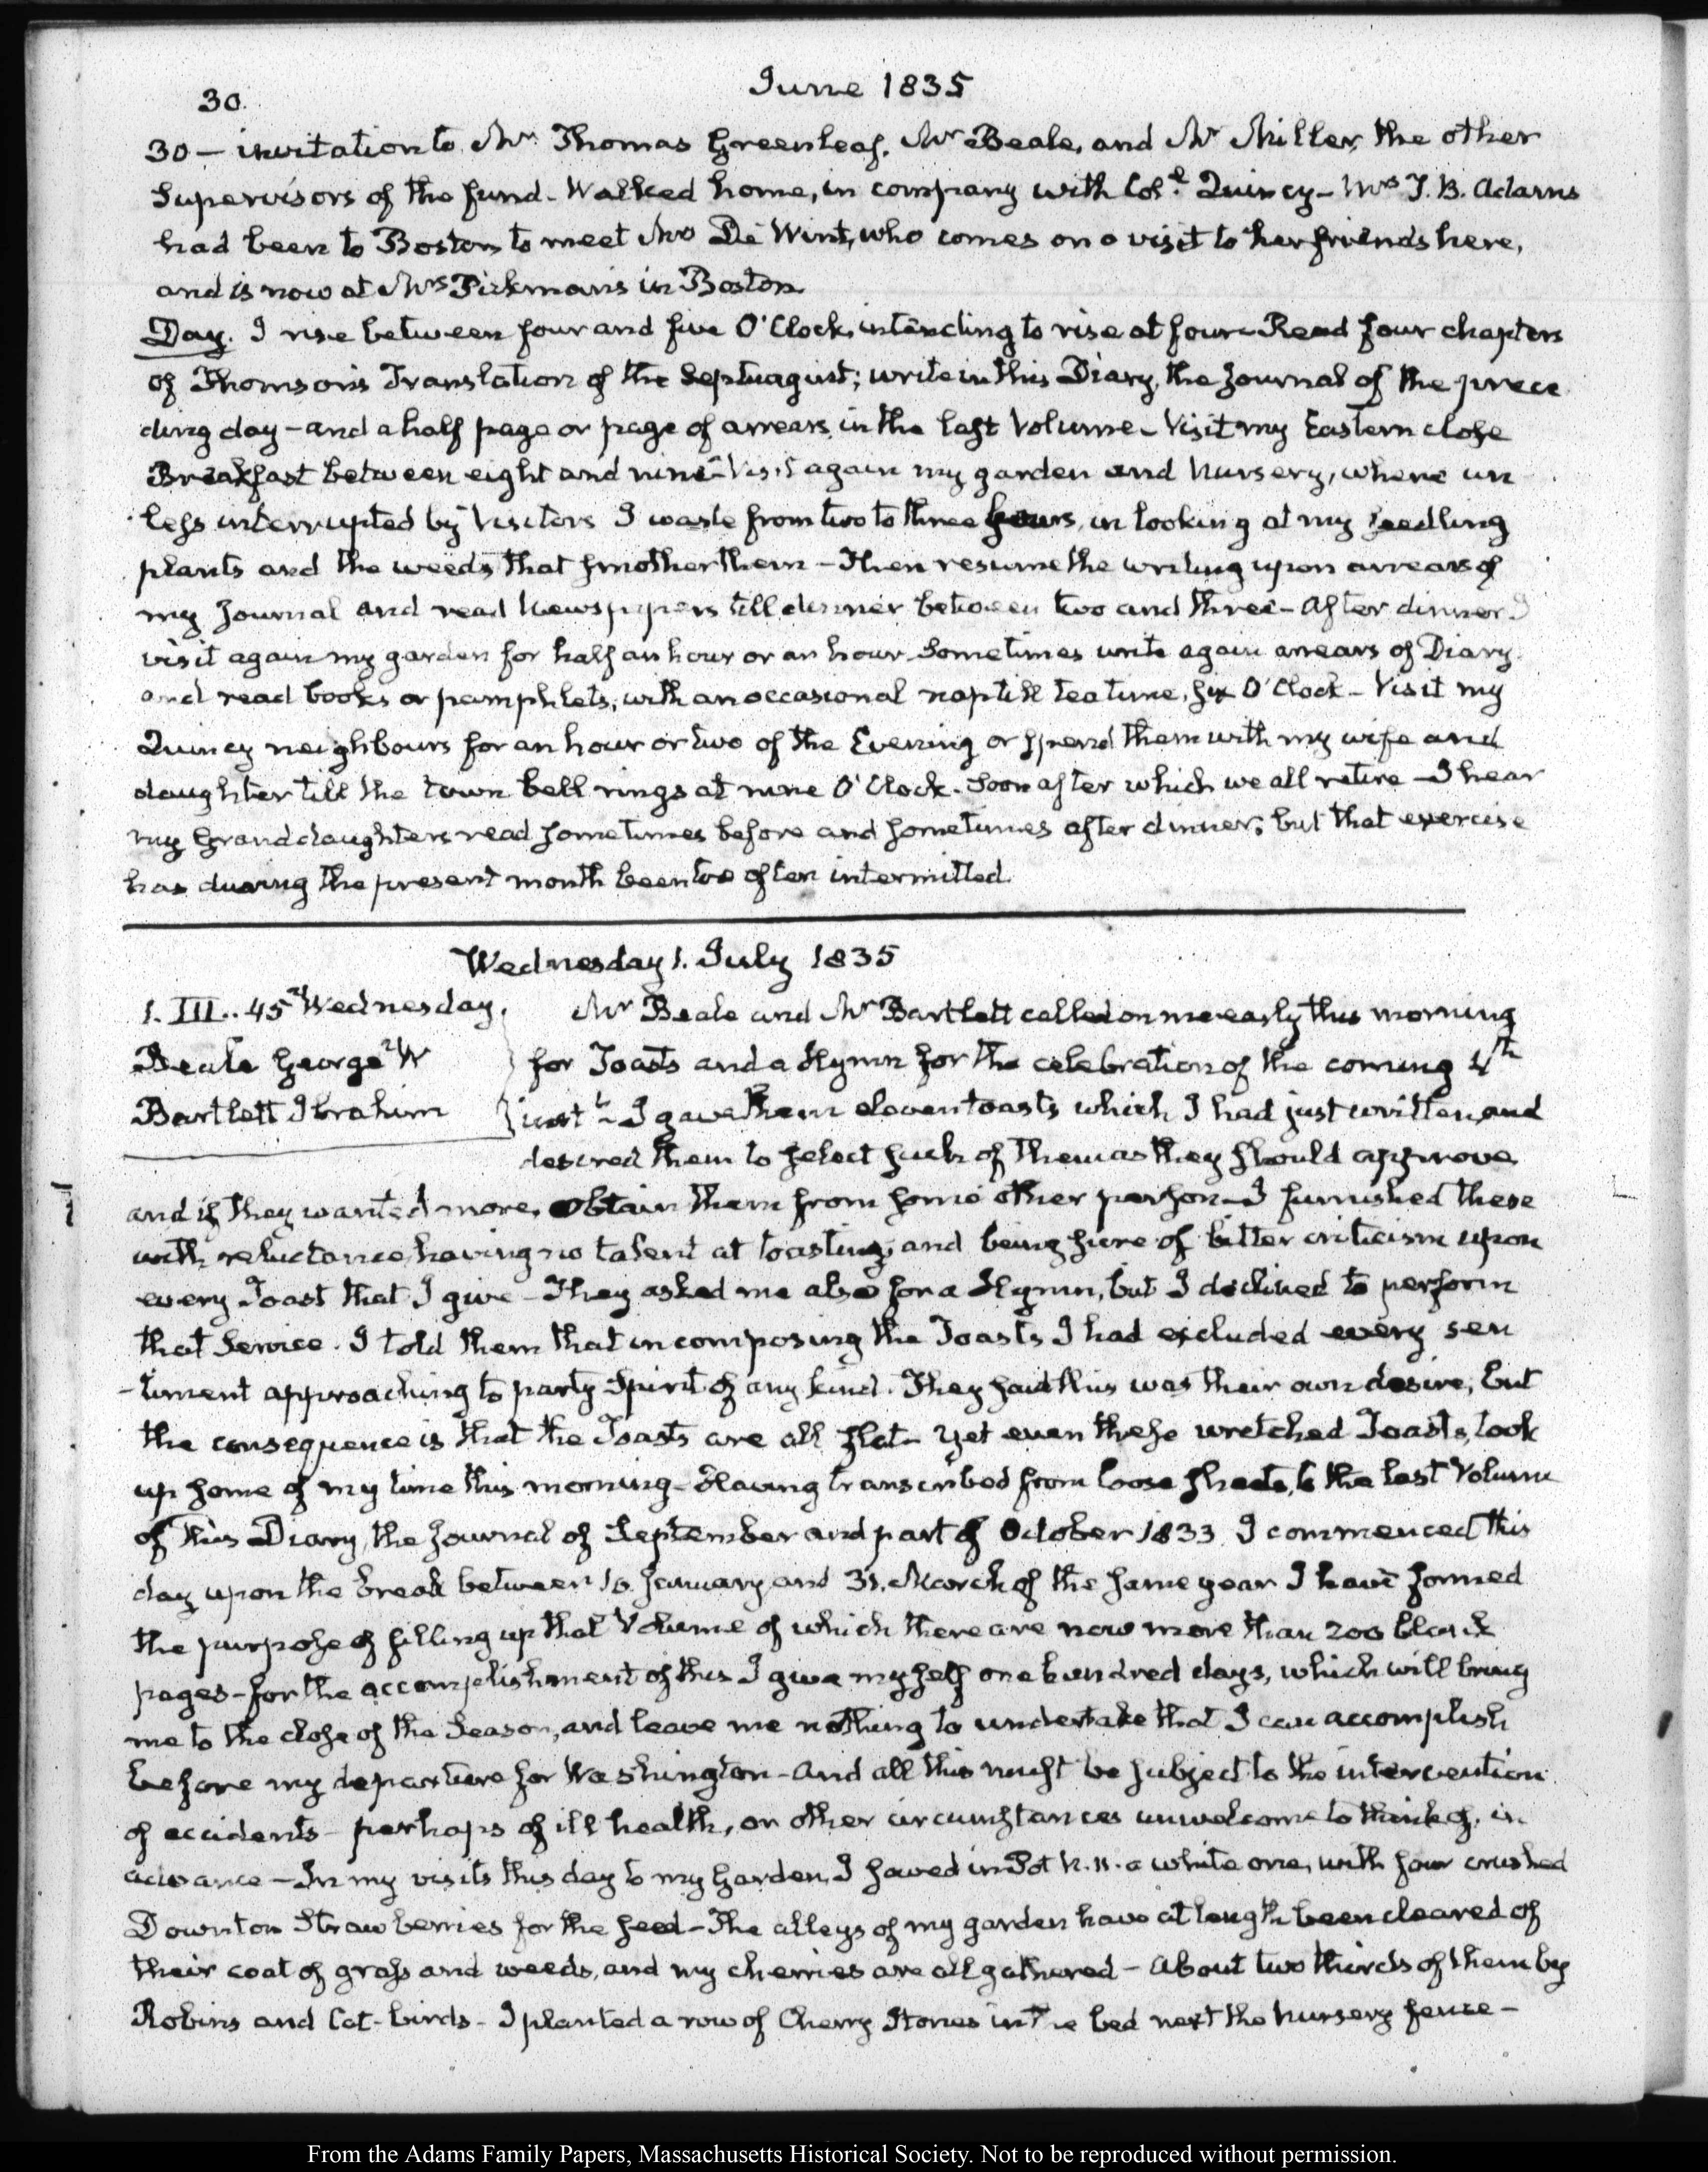 30.
June 1835
30 — invitation to Mr Thomas Greenleaf, Mr Beale, and Mr Miller, the other
Supervisors of the fund. Walked home, in company with Col.l Quincy — Mrs T. B. Adams
had been to Boston to meet Mrs De Wint, who comes on a visit to her friends here,
and is now at Mrs Pickman's in Boston
Day. I rise between four and five O'Clock, intending to rise at four — Read four chapters
of Thomson's Translation of the Septuagint; write in this Diary, the Journal of the prece
ding day — and a half page or page of arrears, in the last Volume — Visit my Eastern close
Breakfast between eight and nine — Visit again my garden and Nursery, where un
less interrupted by Visitors I waste from two to three hours, in looking at my seedling
plants and the weeds that smother them — Then resume the writing upon arrears of
my Journal and read Newspapers till dinner between two and three — After dinner I
visit again my garden for half an hour or an hour. Sometimes write again arrears of Diary
and read books or pamphlets, with an occasional nap till tea time, six O'Clock — Visit my
Quincy neighbours for an hour or two of the Evening or spend them with my wife and
daughter till the town bell rings at nine O'Clock. Soon after which we all retire — I hear
my Granddaughters read sometimes before and sometimes after dinner; but that exercise
has during the present month been too often intermitted.
Wednesday 1. July 1835
1. III.. 45 Wednesday.
Beale George W
Bartlett Ibrahim
Mr Beale and Mr Bartlett called on me early this morning
for Toasts and a Hymn for the celebration of the coming 4th
inst.t — I gave them eleven toasts which I had just written, and
desired them to select such of them as they should approve
and if they wanted more, obtain them from some other person — I furnished these
with reluctance, having no talent at toasting, and being sure of bitter criticism upon
every Toast that I give — They asked me also for a Hymn, but I declined to perform
that Service. I told them that in composing the Toasts I had excluded every sen
-timent approaching to party Spirit of any kind. They said this was their own desire; but
the consequence is that the Toasts are all flat — Yet even these wretched Toasts, took
up some of my time this morning — Having transcribed from loose sheets, to the last Volume
of this Diary, the Journal of September and part of October 1833. I commenced this
day upon the break between 10. January and 31. March of the same year I have formed
the purpose of filling up that Volume of which there are now more than 200 blank
pages — for the accomplishment of this I give myself one hundred days, which will bring
me to the close of the Season, and leave me nothing to undertake that I can accomplish
before my departure for Washington — And all this must be subject to the intervention
of accidents — perhaps of ill health, or other circumstances unwelcome to think of, in
advance — In my visits this day to my Garden, I sowed in Pot N. 11. a white one, with four crushed
Downton Strawberries for the seed — The alleys of my garden have at length been cleared of
their coat of grass and weeds, and my cherries are all gathered — About two thirds of them by
Robins and Cat-birds — I planted a row of Cherry Stones in the bed next the Nursery fence —
From the Adams Family Papers, Massachusetts Historical Society. Not to be reproduced without permission.